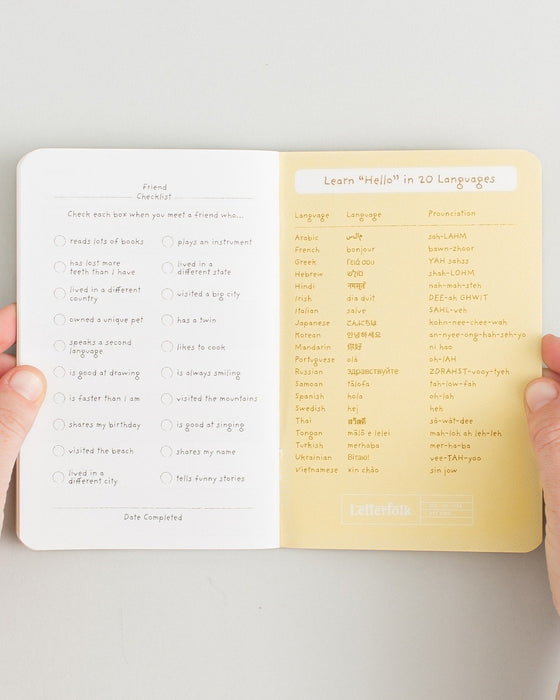 Friend
Checklist
Check each box when you meet a friend who...
reads lots of books
has lost more
teeth than I have
lived in a different
country
owned a unique pet
speaks a second
language
is good at drawing
is faster than I am
shares my birthday
visited the beach
lived in a
different city
plays an instrument
lived in a
different state
visited a big city
has a twin
likes to cook
is always smiling
visited the mountains
is good at singing
shares my name
tells funny stories
Date Completed
Learn “Hello” in 20 Languages
Language Language Prounciation
Arabic sah-LAHM
French bonjour bawn-zhoor
Greek Γειά σου YAH sahss
Hebrew shah-LOHM
Hindi नमस्ते nah-mah-steh
Irish dia duit DEE-ah GHWIT
Italian salve SAHL-veh
Japanese こんにちは kohn-nee-chee-wah
Korean 안녕하세요 an-nyee-ong-hah-seh-yo
Mandarin 你好 ni hao
Portuguese olá oh-lAH
Russian здравствуйте ZDRAHST-vooy-tyeh
Samoan tālofa tah-low-fah
Spanish hola oh-lah
Swedish hej heh
Thai sà-wàt-dee
Tongan mālō e lelei mah-loh ah leh-leh
Turkish merhaba mer-ha-ba
Ukrainian Вітаю! vee-TAH-yoo
Vietnamese xin chào sin jow
Letterfolk